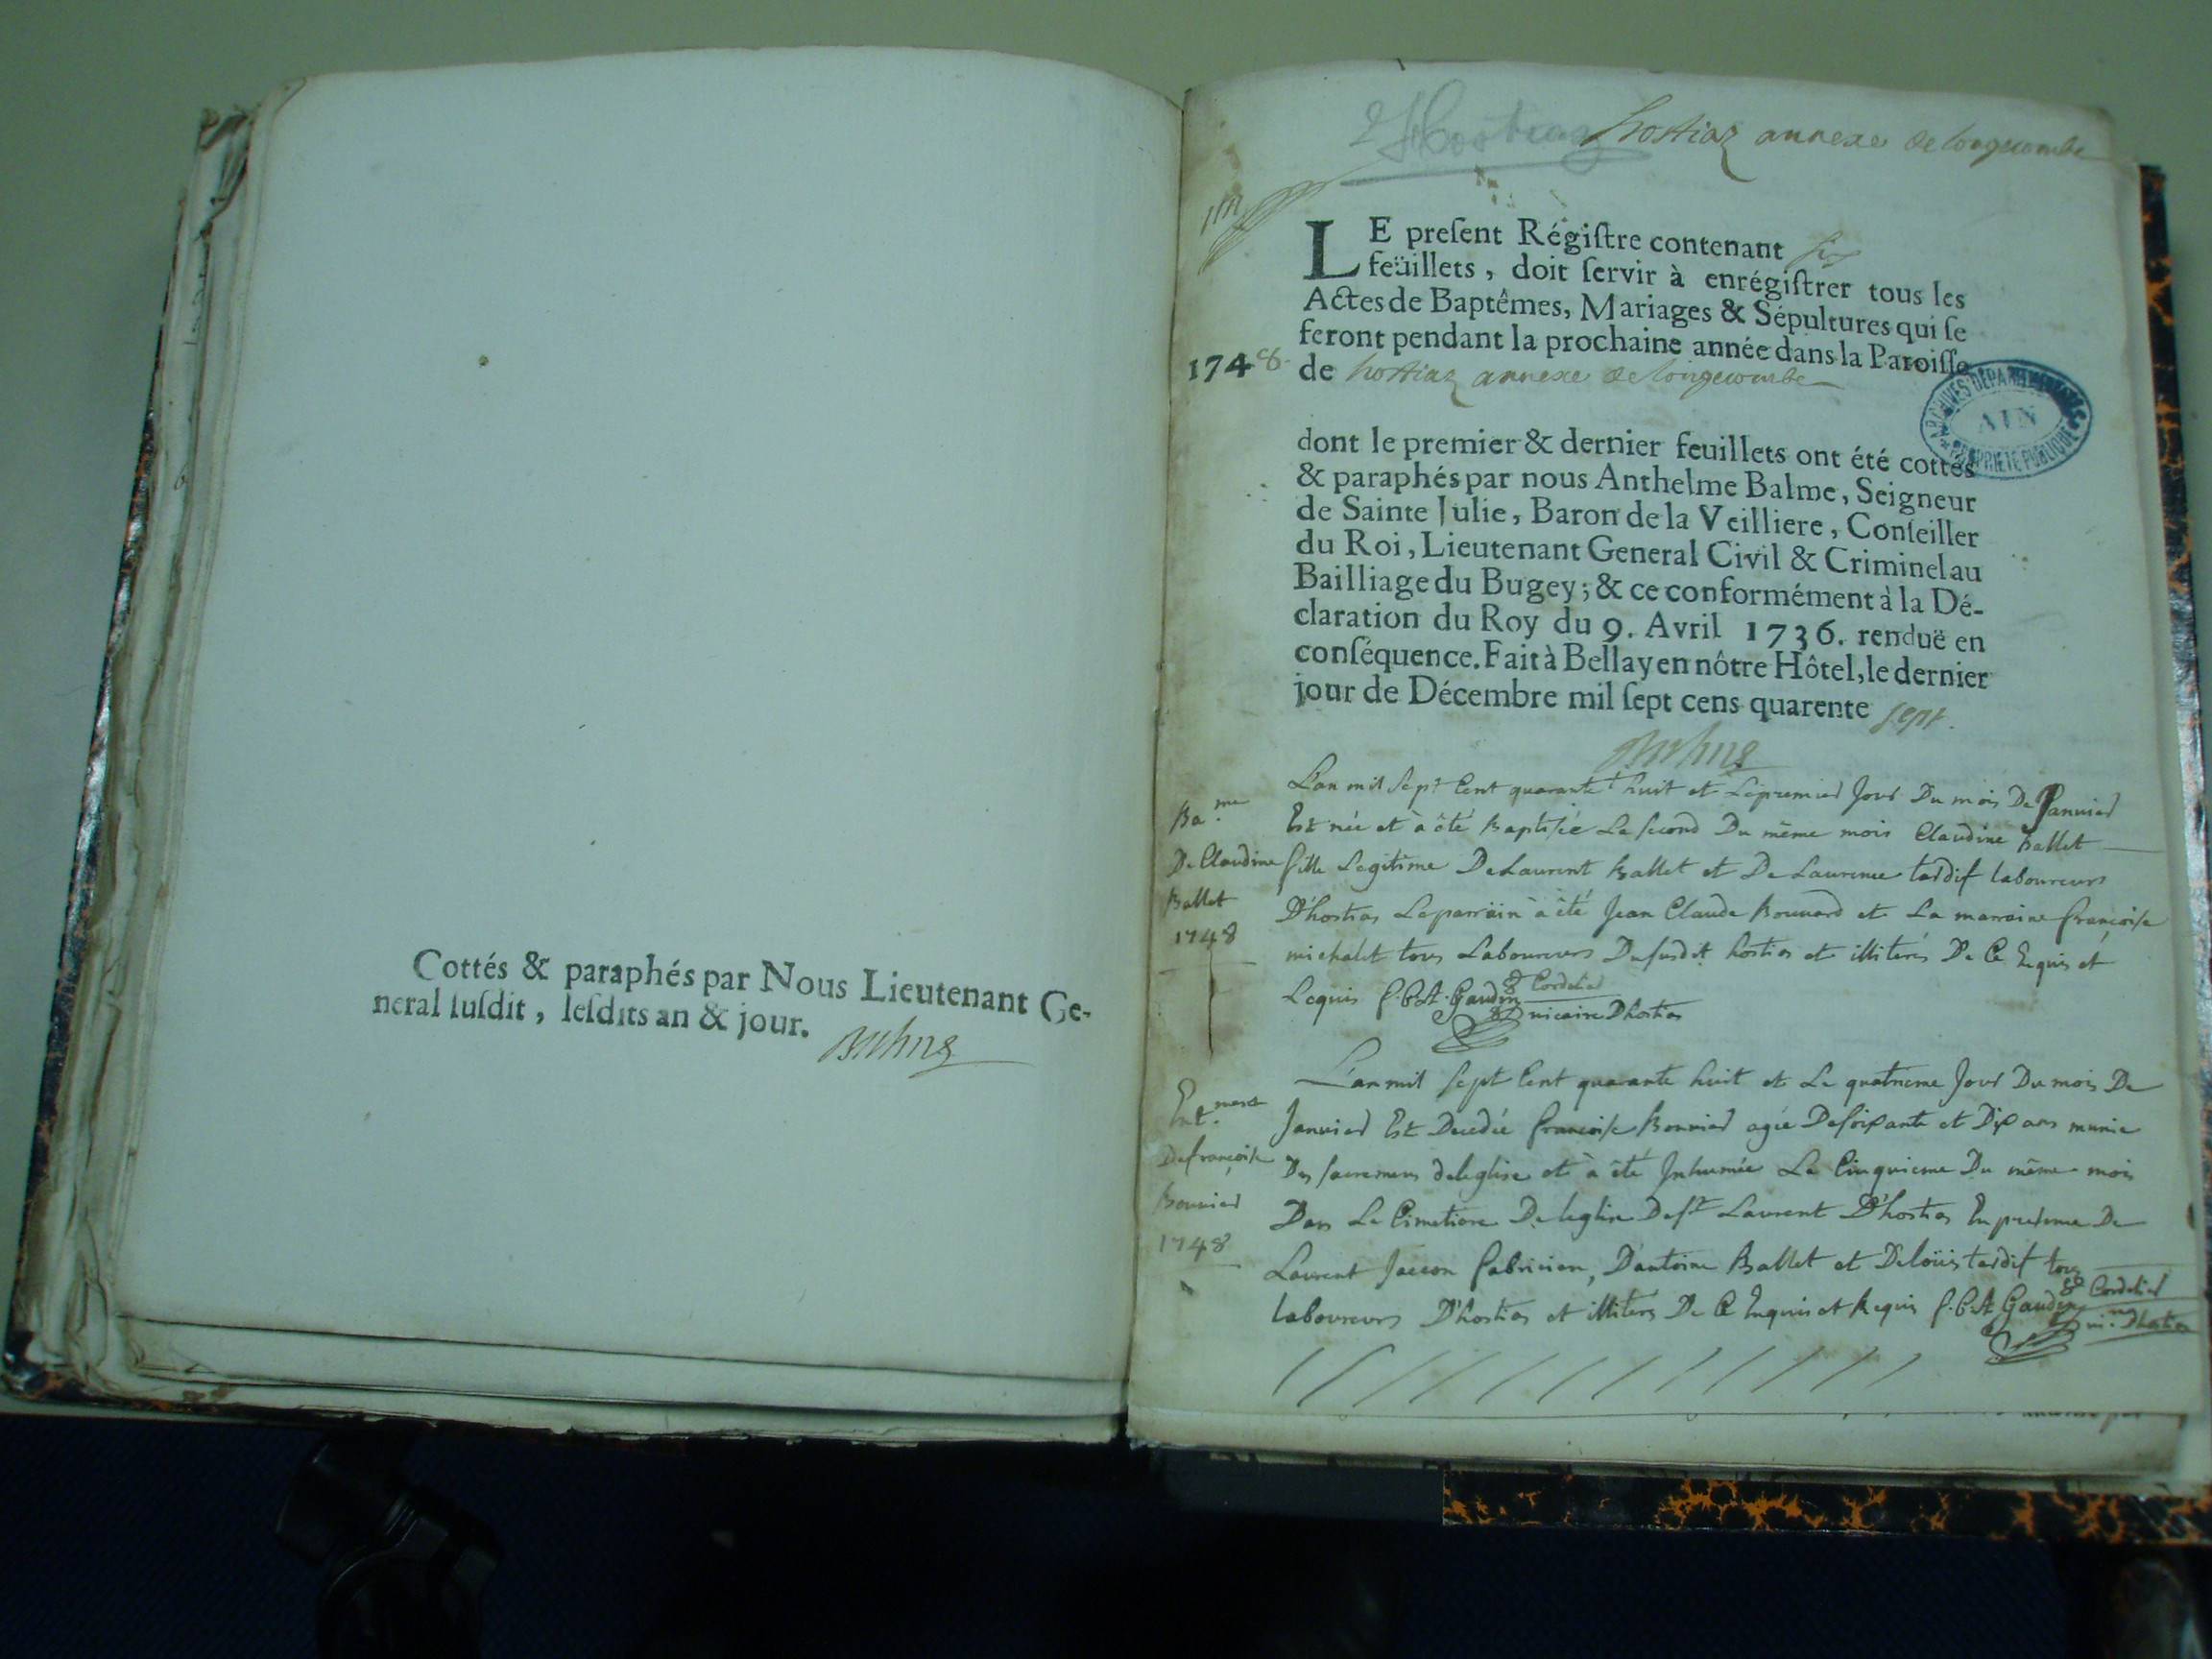 Cottés & paraphés par Nous Lieutenant Ge-
neral susdit, lesdits an & jour.
Hostiaz
hostiaz annexe de longecombe
LE present Régistre contenant six
feüillets, doit servir à enrégistrer tous les
Actes de Baptêmes, Mariages & Sépultures qui se
feront pendant la prochaine année dans la Paroisse
1748. de hostiaz annexe de longecombe
ARCHIVES DÉPARTEMENTALES
AIN
PROPRIÉTÉ PUBLIQUE
dont le premier & dernier feuillets ont été cottés
& paraphés par nous Anthelme Balme, Seigneur
de Sainte Julie, Baron de la Veilliere, Conseiller
du Roi, Lieutenant General Civil & Criminel au
Bailliage du Bugey; & ce conformément à la Dé-
claration du Roy du 9. Avril 1736. renduë en
conséquence. Fait à Bellay en nôtre Hôtel, le dernier
jour de Décembre mil sept cens quarente sept.
Ba.me
De Claudine
Ballet
1748
L'an mil sept Cent quarante huit et Le premier Jour Du mois De Janvier
Est née et à été Baptisée Le second Du même mois Claudine Ballet
fille Legitime De Laurent Ballet et De Laurence tardif laboureurs
D'hostias Le parrain à été Jean Claude Bouvard et La marraine françoise
michalet tous Laboureurs Du susdit hostias et illiterés De Ce Enquis et
Requis f. C. A. Gaudin Cordelier
vicaire D'hostias
Ent.ment
De françoise
Bonnier
1748
L'an mil sept Cent quarante huit et Le quatrieme Jour Du mois De
Janvier Est Decedée françoise Bonnier agée De soixante et Dix ans munie
Des sacremens de leglise et à été Inhumée Le Cinquieme Du même mois
Dans Le Cimetiere De leglise De st Laurent D'hostias En presence De
Laurent Jaccon fabricien, D'antoine Ballet et De loüis tardif tous
laboureurs D'hostias et illiterés De Ce Enquis et Requis f. C. A. Gaudin Cordelier
vi.re D'hostias